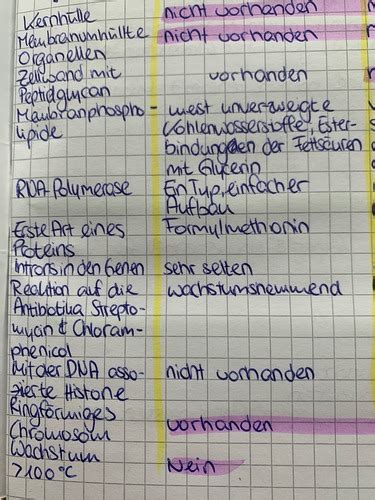 Kernhülle nicht vorhanden
Membranumhüllte nicht vorhanden
Organellen
Zellwand mit vorhanden
Peptidglycan
Membranphospho- meist unverzweigte
lipide Kohlenwasserstoffe, Ester-
bindungen der Fettsäuren
mit Glycerin
RNA Polymerase Ein Typ, einfacher
Aufbau
Erste Art eines Formylmethonin
Proteins
Introns in den Genen sehr selten
Reaktion auf die wachstumshemmend
Antibotika Strepto-
mycin & Chloram-
phenicol
Mit der DNA asso- nicht vorhanden
zierte Histone
Ringförmiges vorhanden
Chromosom
Wachstum Nein
>100°C